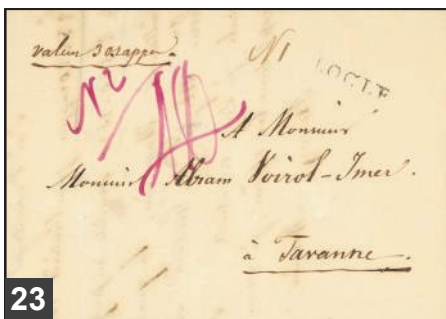 valeur 30 rappen.
N1
LOCLE
N2
A Monsieur
Monsieur Abram Voirol-Imer.
à Tavanne.
23